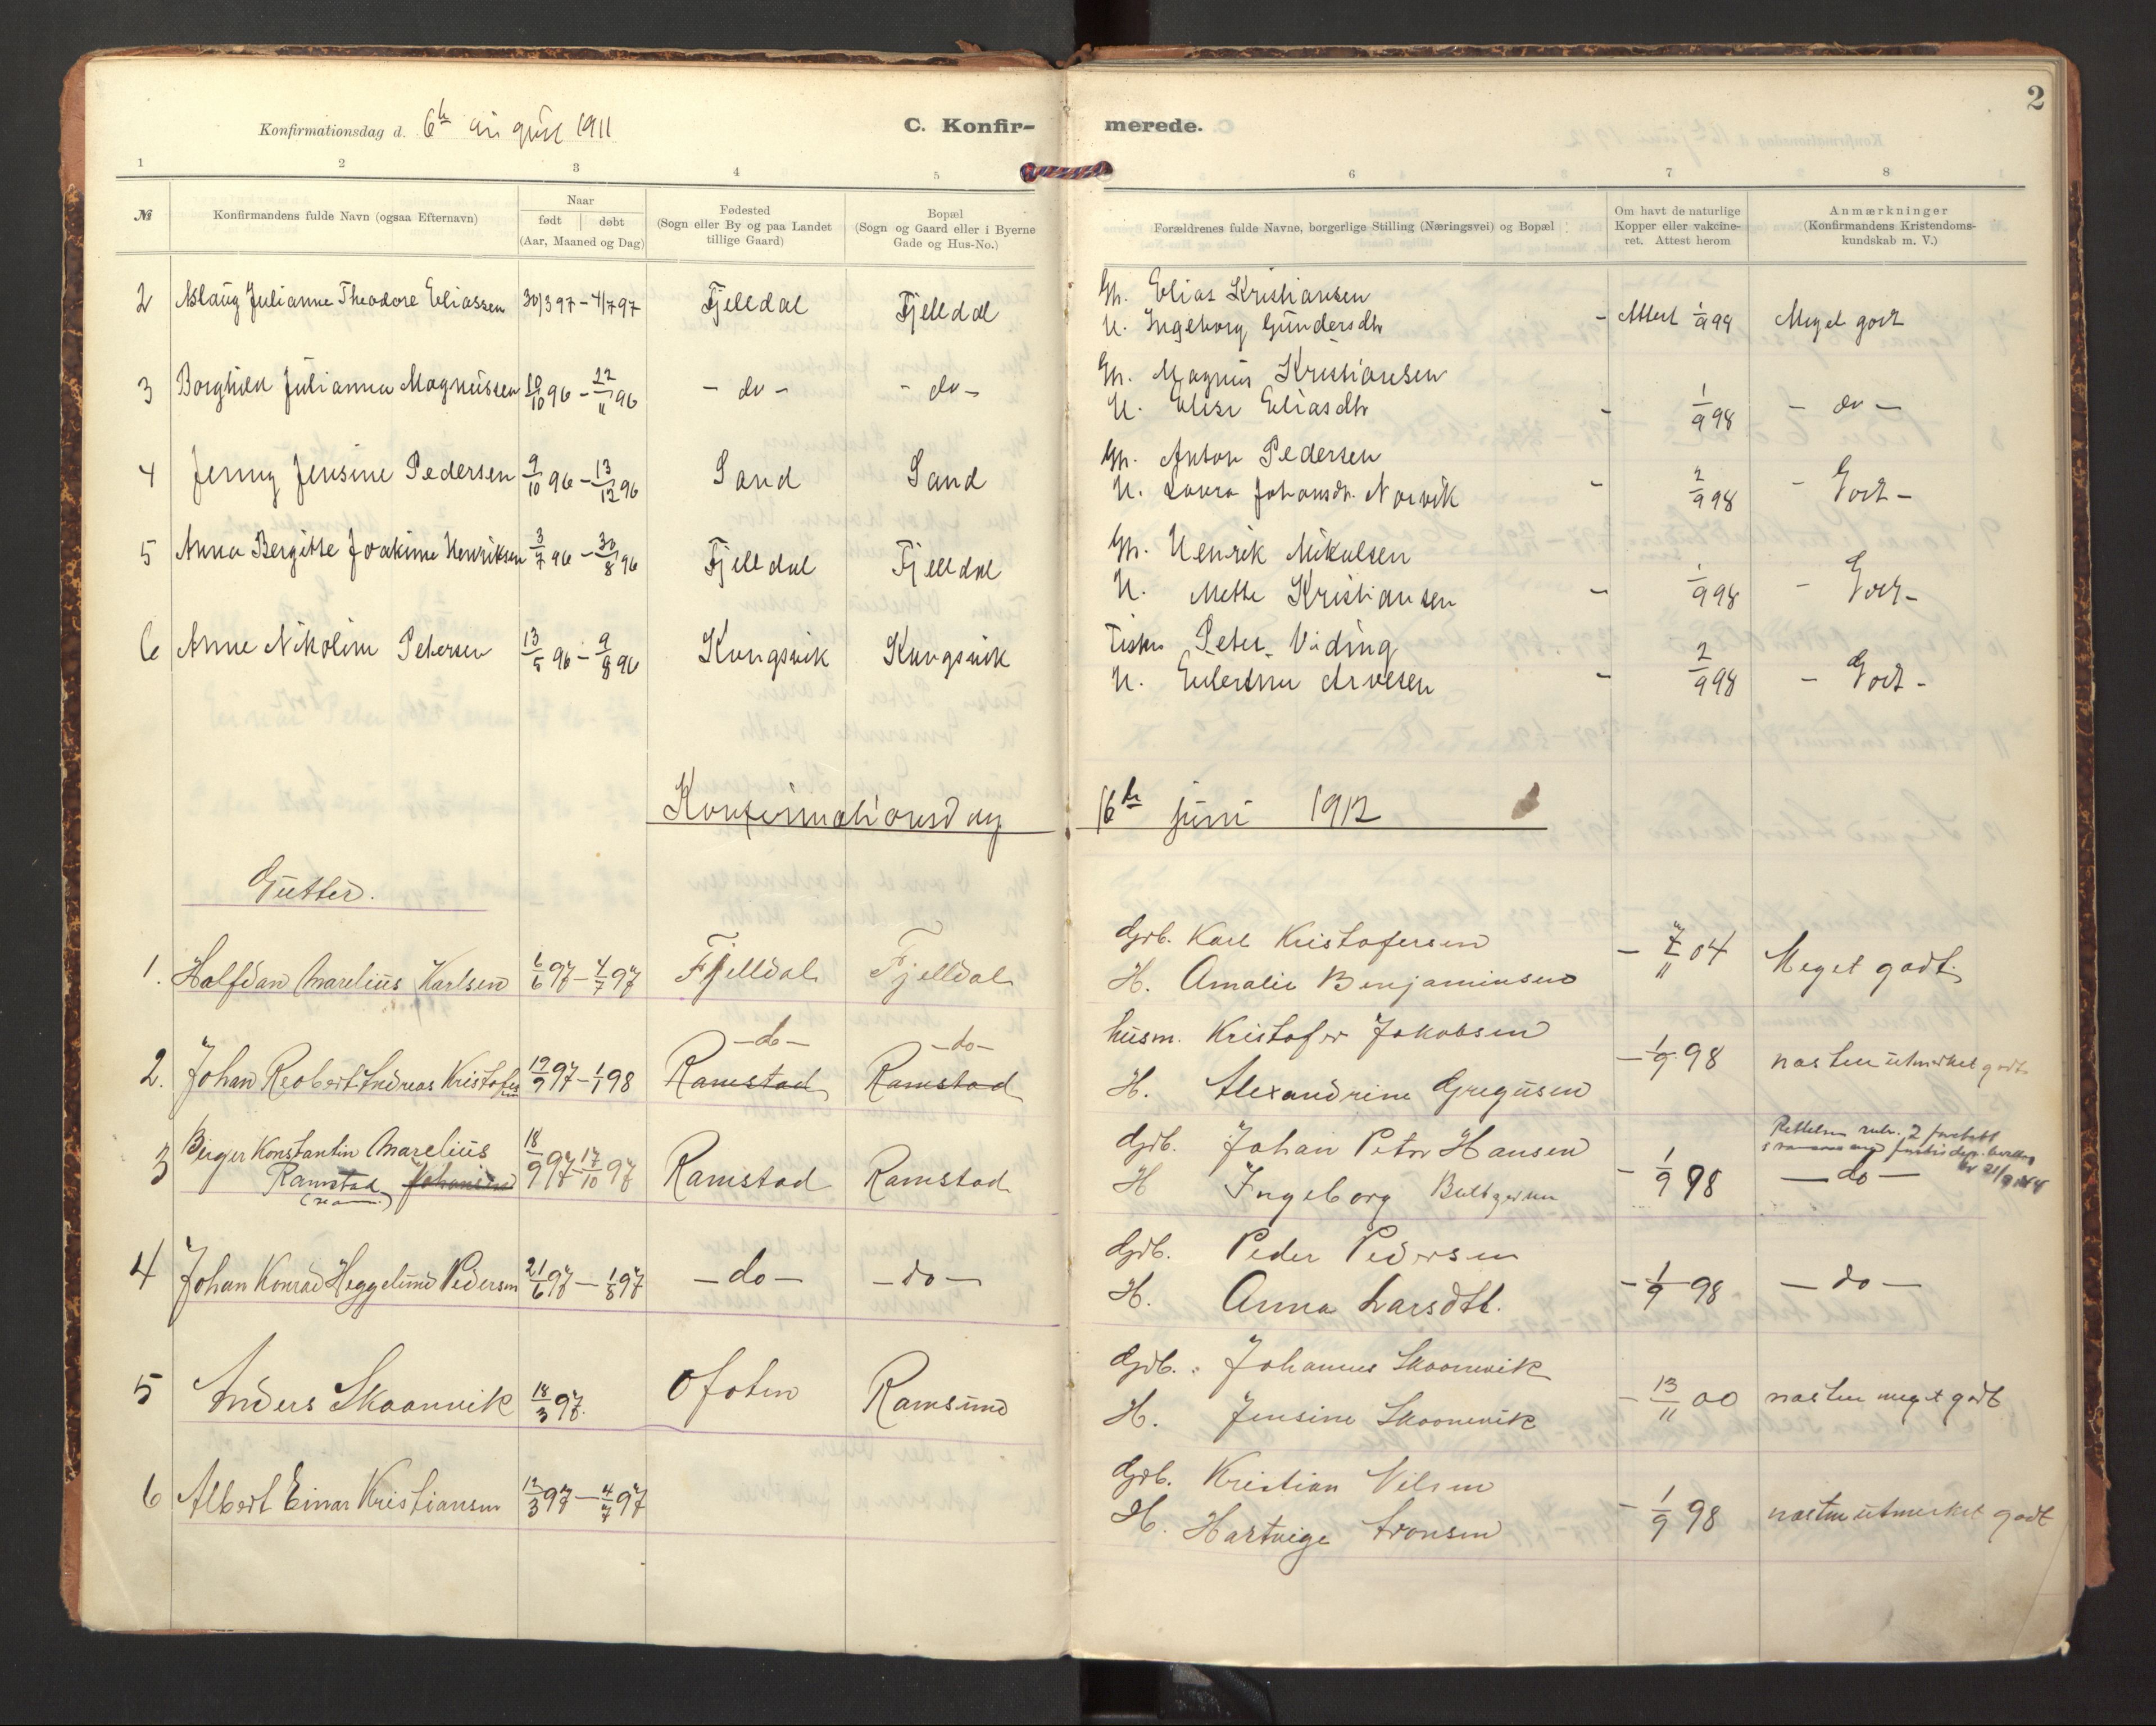 2
Konfirmationsdag d. 6te august 1911 C. Konfir- merede.
1 2 3 4 5 6 7 8
№ Konfirmandens fulde Navn (ogsaa Efternavn) Naar født døbt (Aar, Maaned og Dag) Fødested (Sogn eller By og paa Landet tillige Gaard) Bopæl (Sogn og Gaard eller i Byerne Gade og Hus-No.) Forældrenes fulde Navne, borgerlige Stilling (Næringsvei) og Bopæl Om havt de naturlige Kopper eller vakcineret. Attest herom Anmærkninger (Konfirmandens Kristendomskundskab m. V.)
2 Aslaug Julianne Theodore Eliassen 30/3 97 - 4/7 97 Fjelldal Fjelldal Gb. Elias Kristiansen
H. Ingeborg Gundersdtr - Attest 1/9 99 Meget godt
3 Borghild Julianna Magnussen 10/10 96 - 22/11 96 - do - - do - Gb. Magnus Kristiansen
H. Elise Eliasdtr - 1/9 98 - do -
4 Jenny Jensine Pedersen 9/10 96 - 13/12 96 Sand Sand Gb. Anton Pedersen
H. Laura Johansdtr. Norvik - 2/9 98 - Godt -
5 Anna Bergitte Joakime Henriksen 3/7 96 - 30/8 96 Fjelldal Fjelldal Gb. Henrik Mikalsen
H. Mette Kristiansen - 1/9 98 - Godt -
6 Anne Nikoline Petersen 13/5 96 - 9/8 96 Kongsvik Kongsvik Fisker Peter Viding
H. Arvesen - 2/9 98 - Godt -
Konfirmationsdag 16de juni 1912
Gutter.
1. Halfdan Marelius Karlsen 6/6 97 - 4/7 97 Fjelldal Fjelldal Gdb. Karl Kristofersen
H. Amalie Benjaminsen - 7/11 04 Meget godt.
2. Johan Reobert Andreas Kristofersen 19/9 97 - 1/1 98 - do - Ramstad - do - Ramstad husm. Kristofer Jakobsen
H. Alexandrine Gregusen - 1/9 98 næsten utmerket godt
3 Birger Konstantin Marelius
Ramstad Johansen 18/9 97 - 17/10 97 Ramstad Ramstad Gdb. Johan Peter Hansen
H Ingeborg Baltzersen - 1/9 98 - do -
4 Johan Konrad Heggelund Pedersen 21/6 97 - 1/8 97 - do - - do - Gdb. Peder Pedersen
H. Anna Larsdtt. - 1/9 98 - do -
5 Anders Skoanvik 18/3 97. Ofoten Ramsund Gdb. Johannes Skoanvik
H. Jensine Skoanvik - 13/11 00 næsten meget godt
6 Albert Einar Kristiansen 12/3 97 - 4/7 97 Gdb. Kristian Nilsen
H. Hartvige Aronsen - 1/9 98 næsten utmerket godt